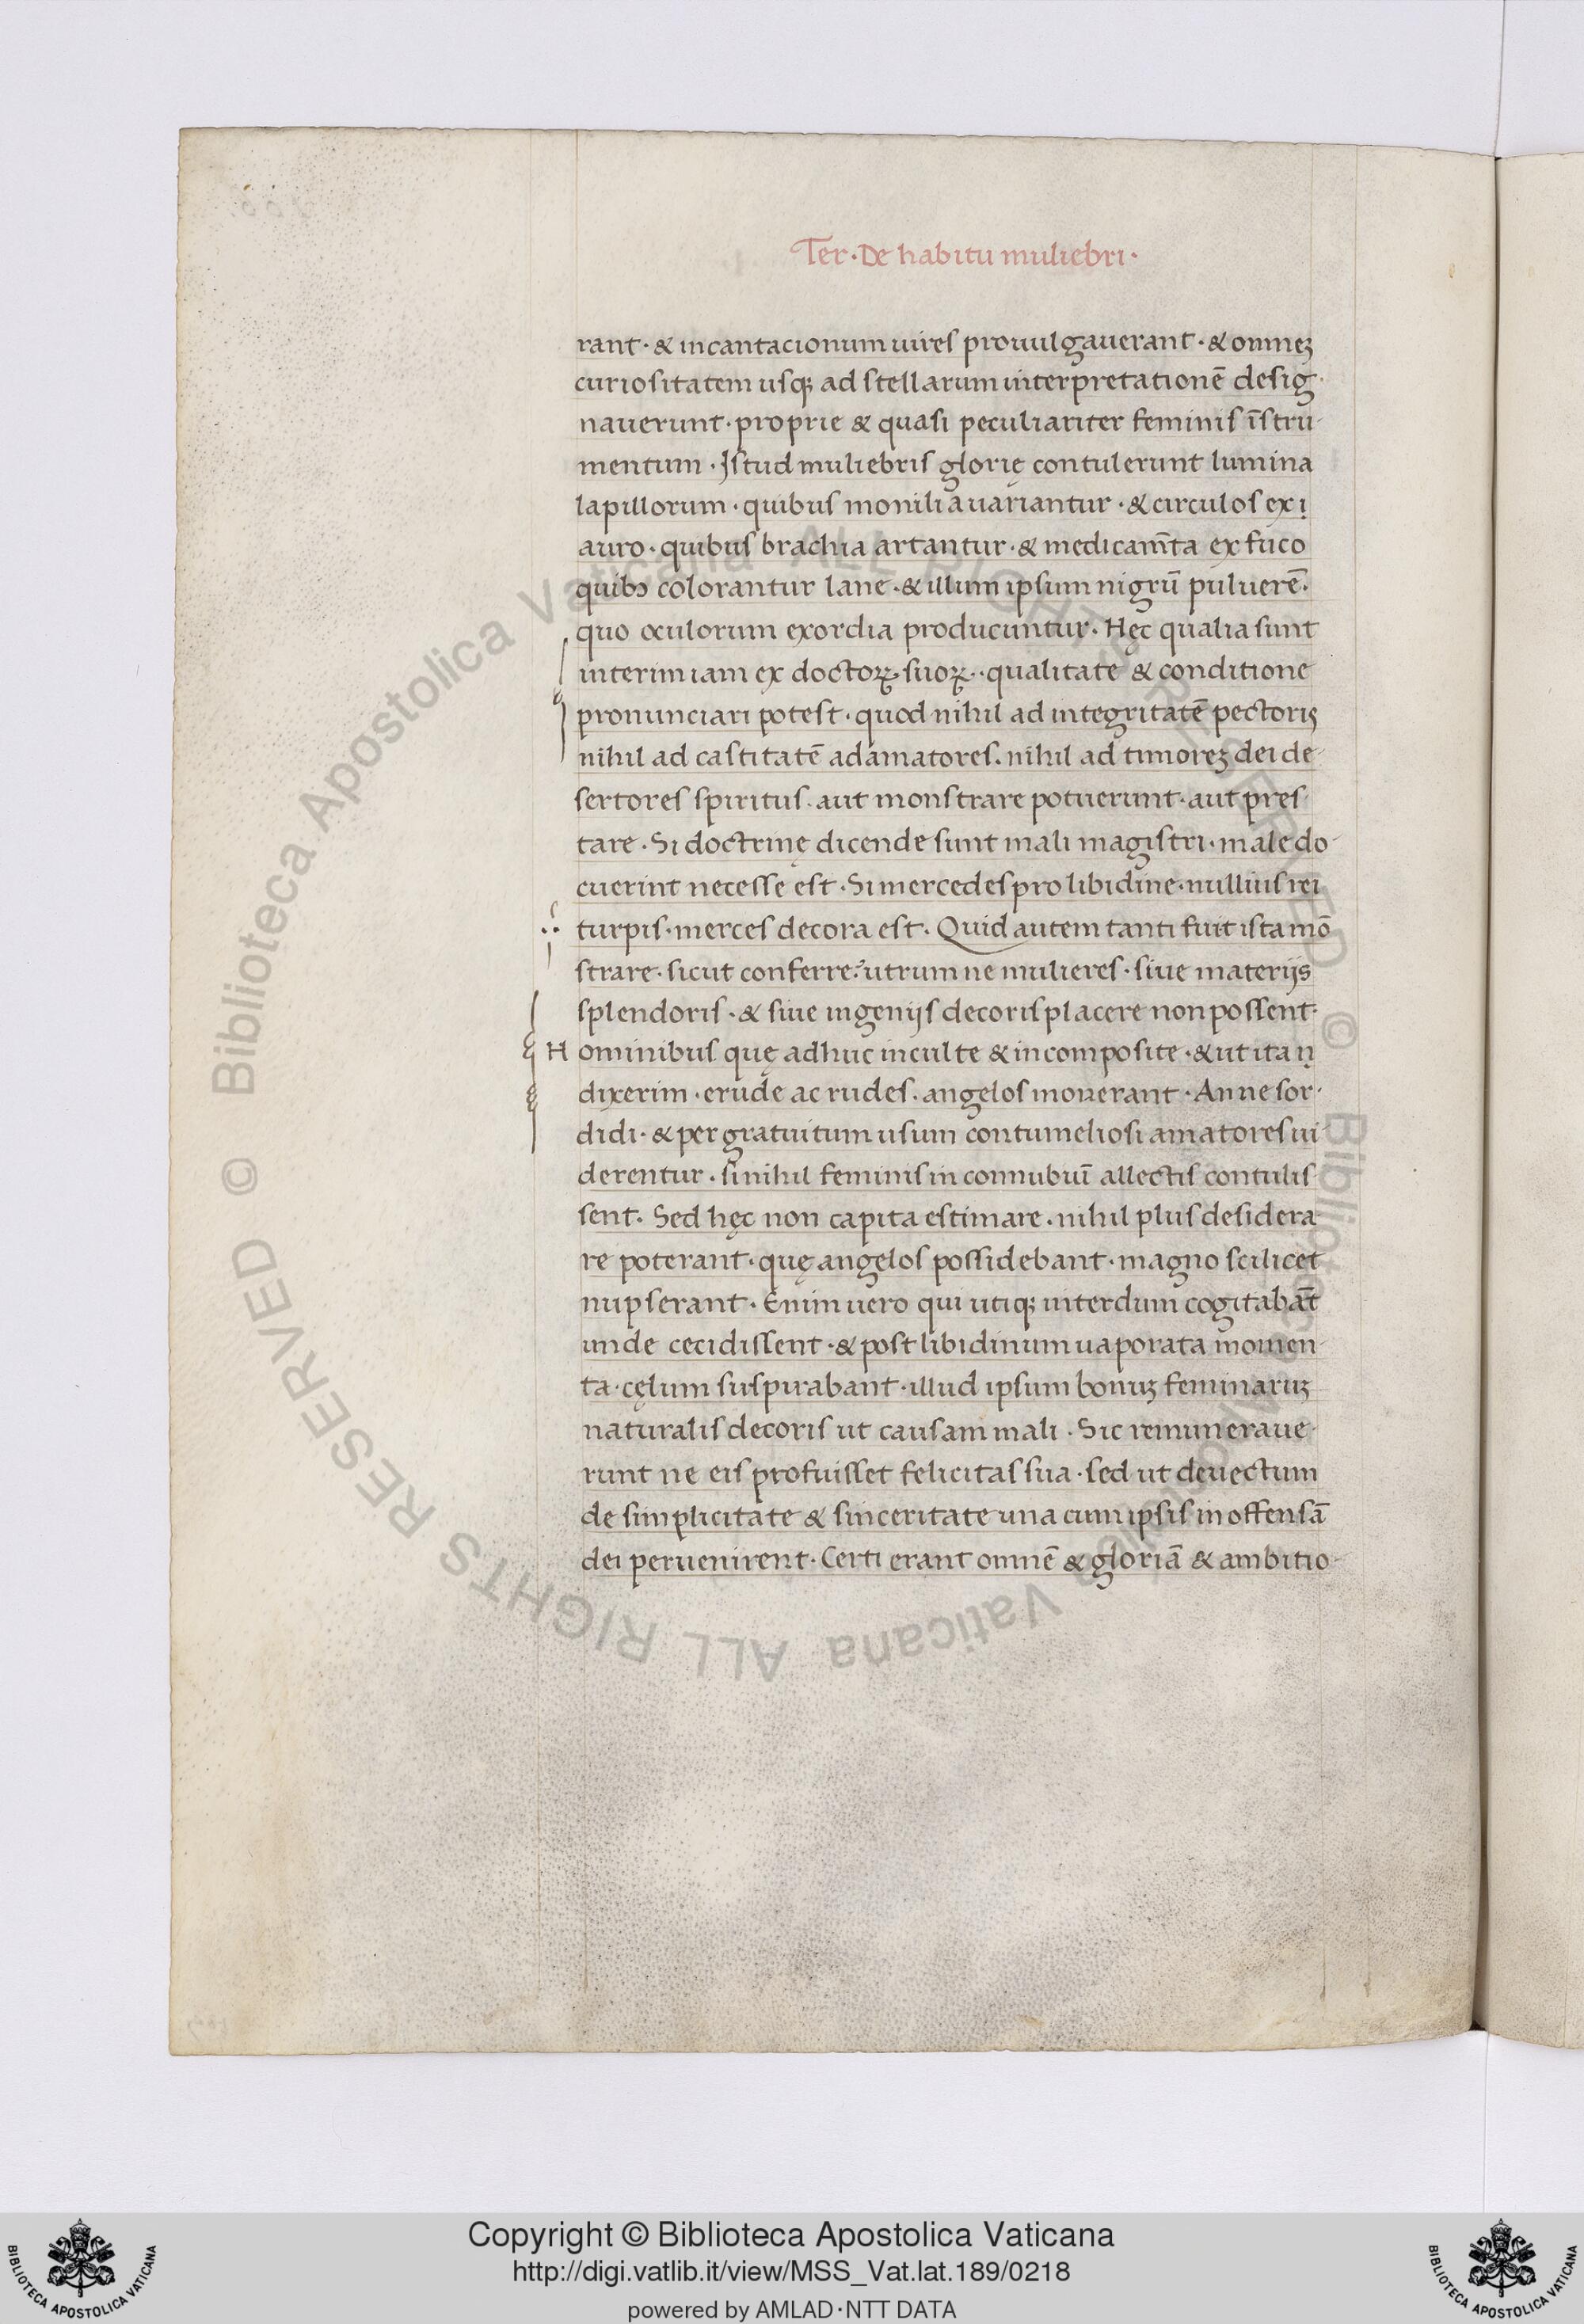 Ter · De habitu muliebri ·
rant · & incantacionum uires prouulgauerant · & omneʒ
curiositatem usqꝫ ad stellarum interpretationē desig-
nauerunt · proprie & quasi peculiariter feminis īstru-
mentum · Istud muliebris glorię contulerunt lumina
lapillorum · quibus monilia uariantur · & circulos ex ı
auro · quibus brachia artantur · & medicam̄ta ex fuco
quibꝯ colorantur lane · & illum ipsum nigrū puluerē ·
quo oculorum exordia producuntur · Hęc qualia sunt
interim iam ex doctoꝝ suoꝝ · qualitate & conditione
pronunciari potest · quod nihil ad integritatē pectoris
nihil ad castitatē adamatores · nihil ad timoreʒ dei de-
sertores spiritus · aut monstrare potuerunt · aut pres-
tare · Si doctrinę dicende sunt mali magistri · male do-
cuerint necesse est · Si mercedes pro libidine · nullius rei
turpis · merces decora est · Quid autem tanti fuit ista mō
strare · sicut conferre? utrum ne mulieres · siue materijs
splendoris · & siue ingenijs decoris placere non possent ·
Hominibus quę adhuc inculte & incomposite · & ut ita ṇ
dixerim · erude ac rudes · angelos mouerant · An ne sor-
didi · & per gratuitum usum contumeliosi amatores ui-
derentur · si nihil feminis in connubiū allectis contulis-
sent · Sed hęc non capita estimare · nihil plus desidera-
re poterant · quę angelos possidebant · magno scilicet
nupserant · Enim uero qui utiqꝫ interdum cogitabāt
unde cecidissent · & post libidinum uaporata momen-
ta · cęlum suspirabant · illud ipsum bonuʒ feminaruʒ
naturalis decoris ut causam mali · Sic remuneraue-
runt ne eis profuisset felicitas sua · sed ut deuectum
de simplicitate & sinceritate una cum ipsis in offensā
dei peruenirent · Certi erant omnē & gloriā & ambitio-
© Biblioteca Apostolica Vaticana ALL RIGHTS RESERVED © Biblioteca Apostolica Vaticana ALL RIGHTS RESERVED
BIBLIOTECA APOSTOLICA VATICANA
Copyright © Biblioteca Apostolica Vaticana
http://digi.vatlib.it/view/MSS_Vat.lat.189/0218
powered by AMLAD·NTT DATA
BIBLIOTECA APOSTOLICA VATICANA